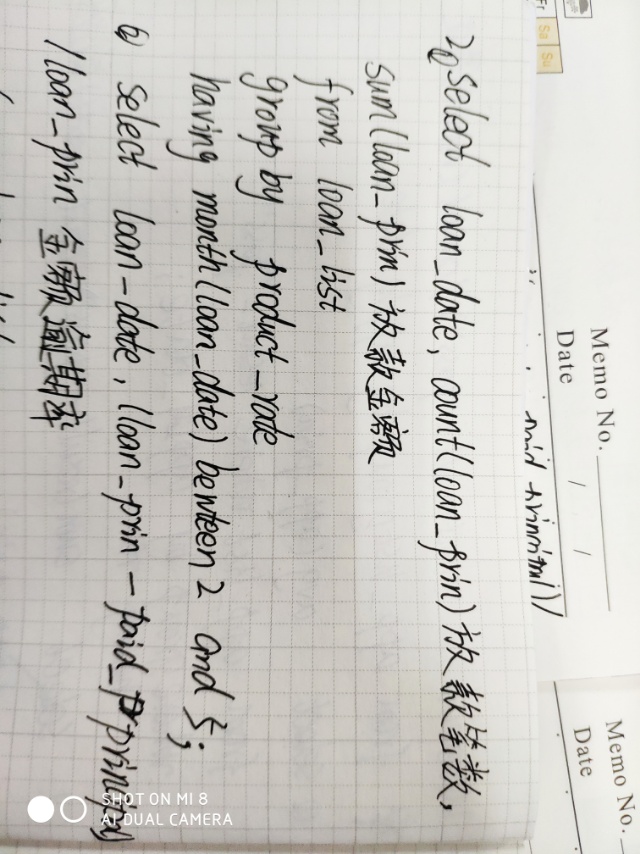 Memo No.
Date / /
Memo No.
Date
Fr
Sa
Su
select loan_date, count(loan_prin) 放款笔数,
sum(loan_prin) 放款金额
from loan_list
group by product_note
having month(loan_date) between 2 and 3;
⑥ select loan-date, (loan_prin - paid_principal)
/loan_prin 金额逾期率
SHOT ON MI 8
AI DUAL CAMERA